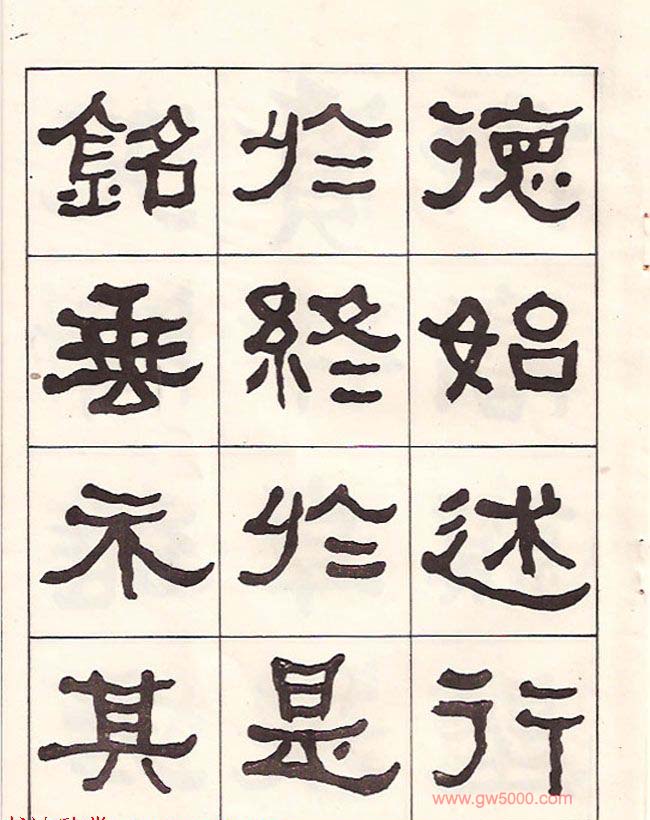 德始述行
於終於是
銘垂示其
www.gw5000.com